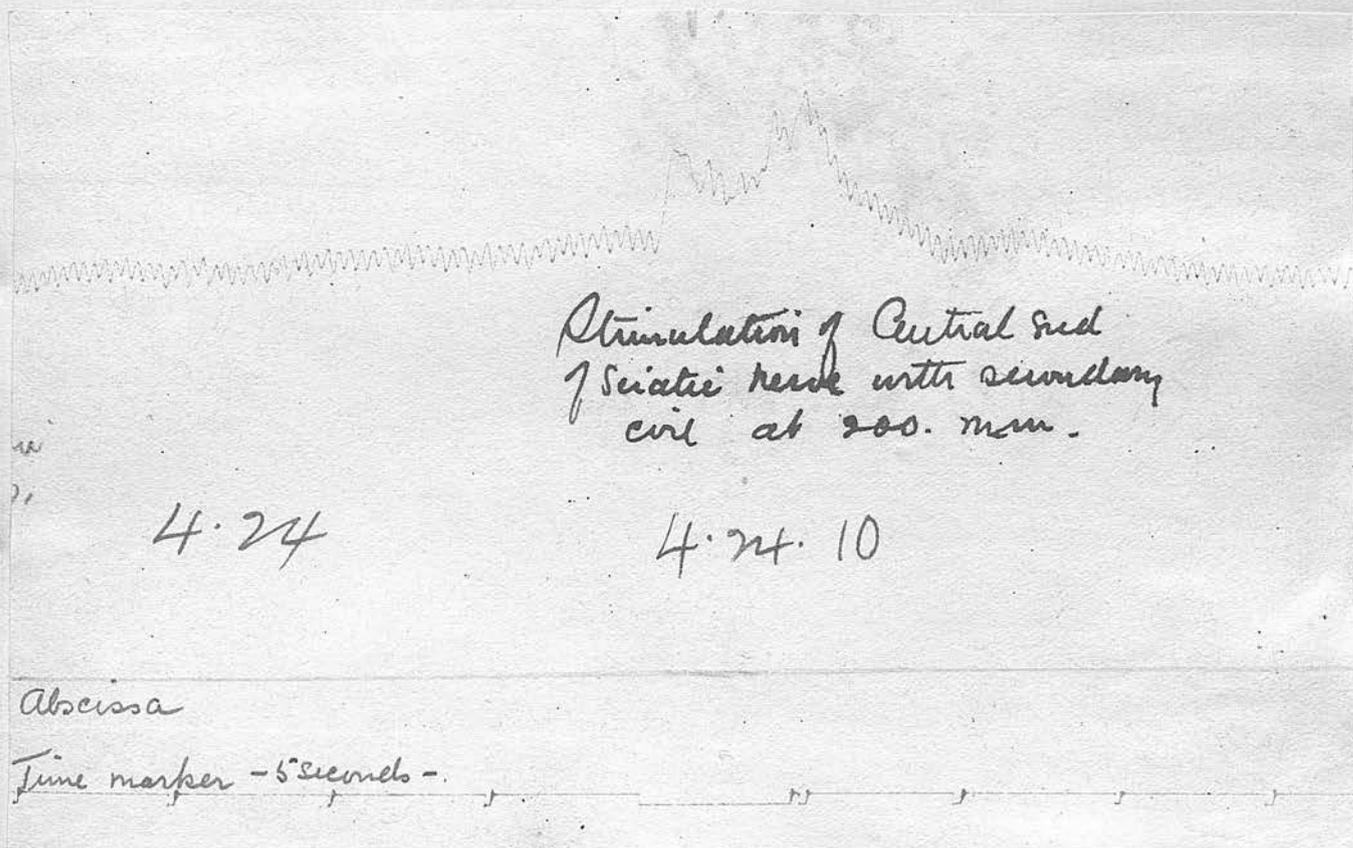 Stimulation of Central End
of Sciatic Nerve with secondary
coil at 200. mm.
4.24
4.24.10
Abscissa
Time marker - 5 seconds -.